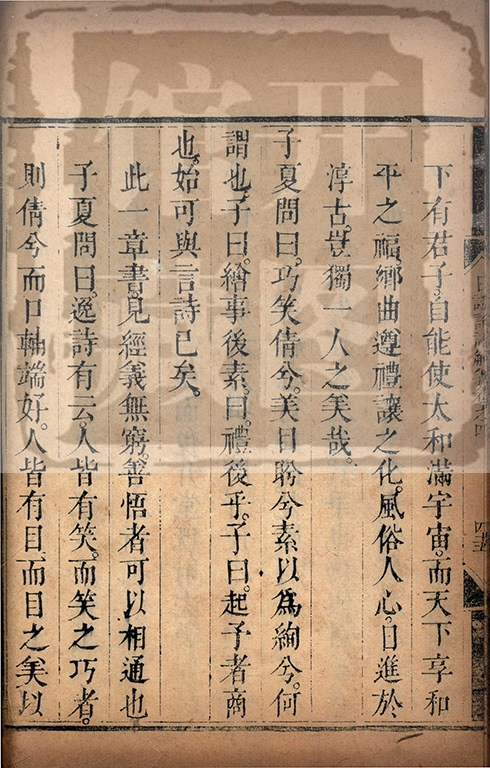 下有君子。自能使太和滿宇宙。而天下享和
平之福。鄉曲遵禮讓之化。風俗人心。日進於
淳古。豈獨一人之美哉。
子夏問曰。巧笑倩兮。美目盼兮。素以為絢兮。何
謂也。子曰。繪事後素。曰。禮後乎。子曰。起予者商
也。始可與言詩已矣。
此一章書。見經義無窮。善悟者可以相通也
子夏問曰。逸詩有云。人皆有笑。而笑之巧者。
則倩兮而口輔端好。人皆有目。而目之美以